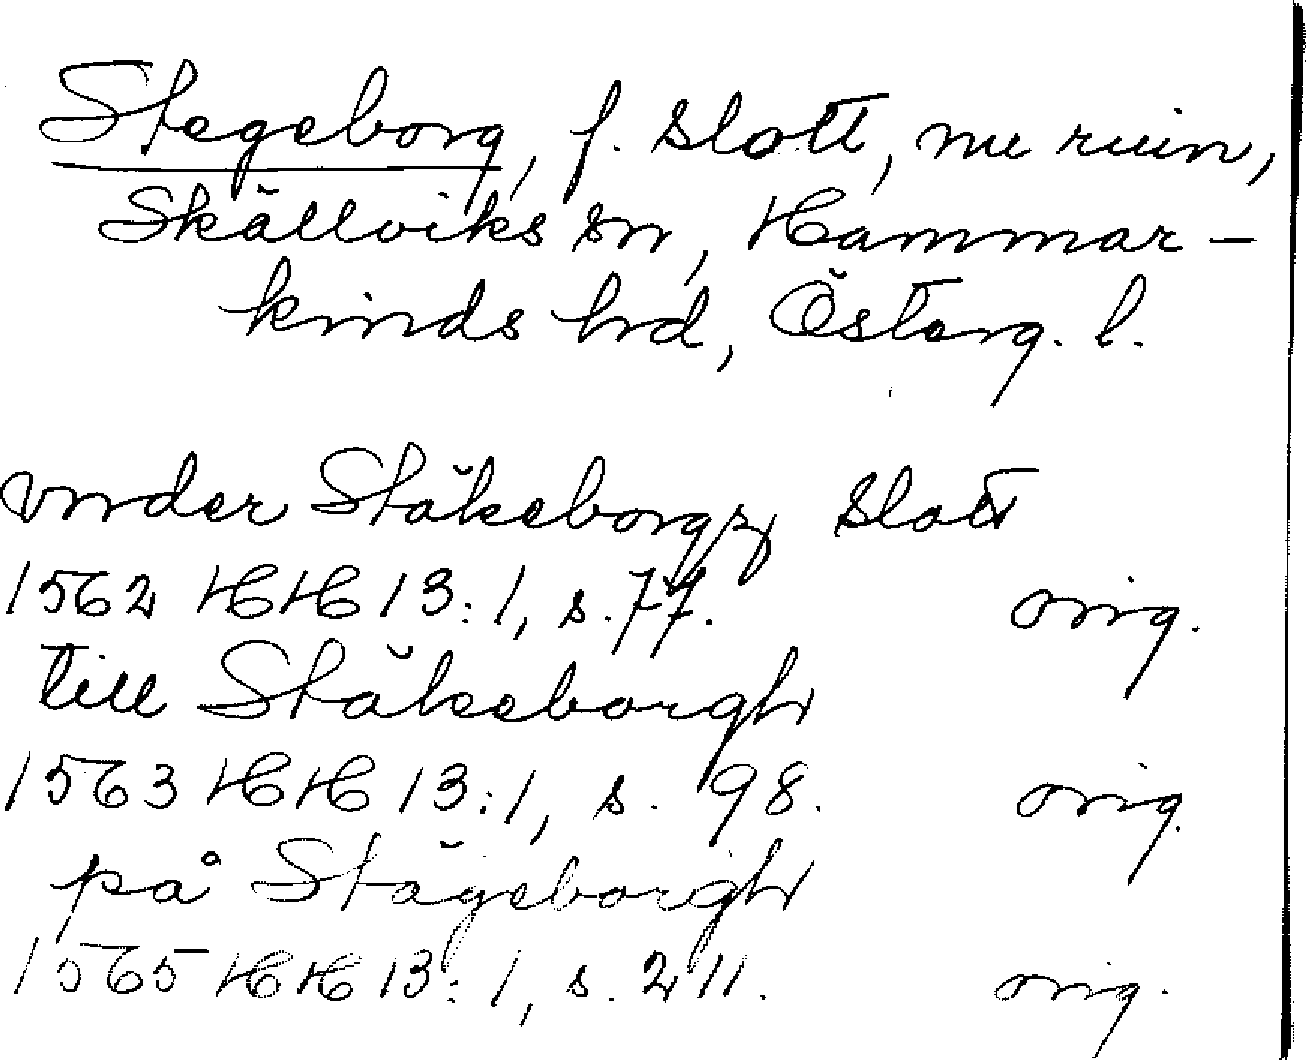 Stegeborg, f. slott, nu ruin,
Skällviks sn, Hammar-
kinds hd, Österg. l.
vnder Stäkeborgz slott
1562 HH 13:1, s. 77. orig.
till Stäkeborgh
1563 HH 13:1, s. 98. orig.
på Stägeborgh
1565 HH 13:1, s. 211. orig.